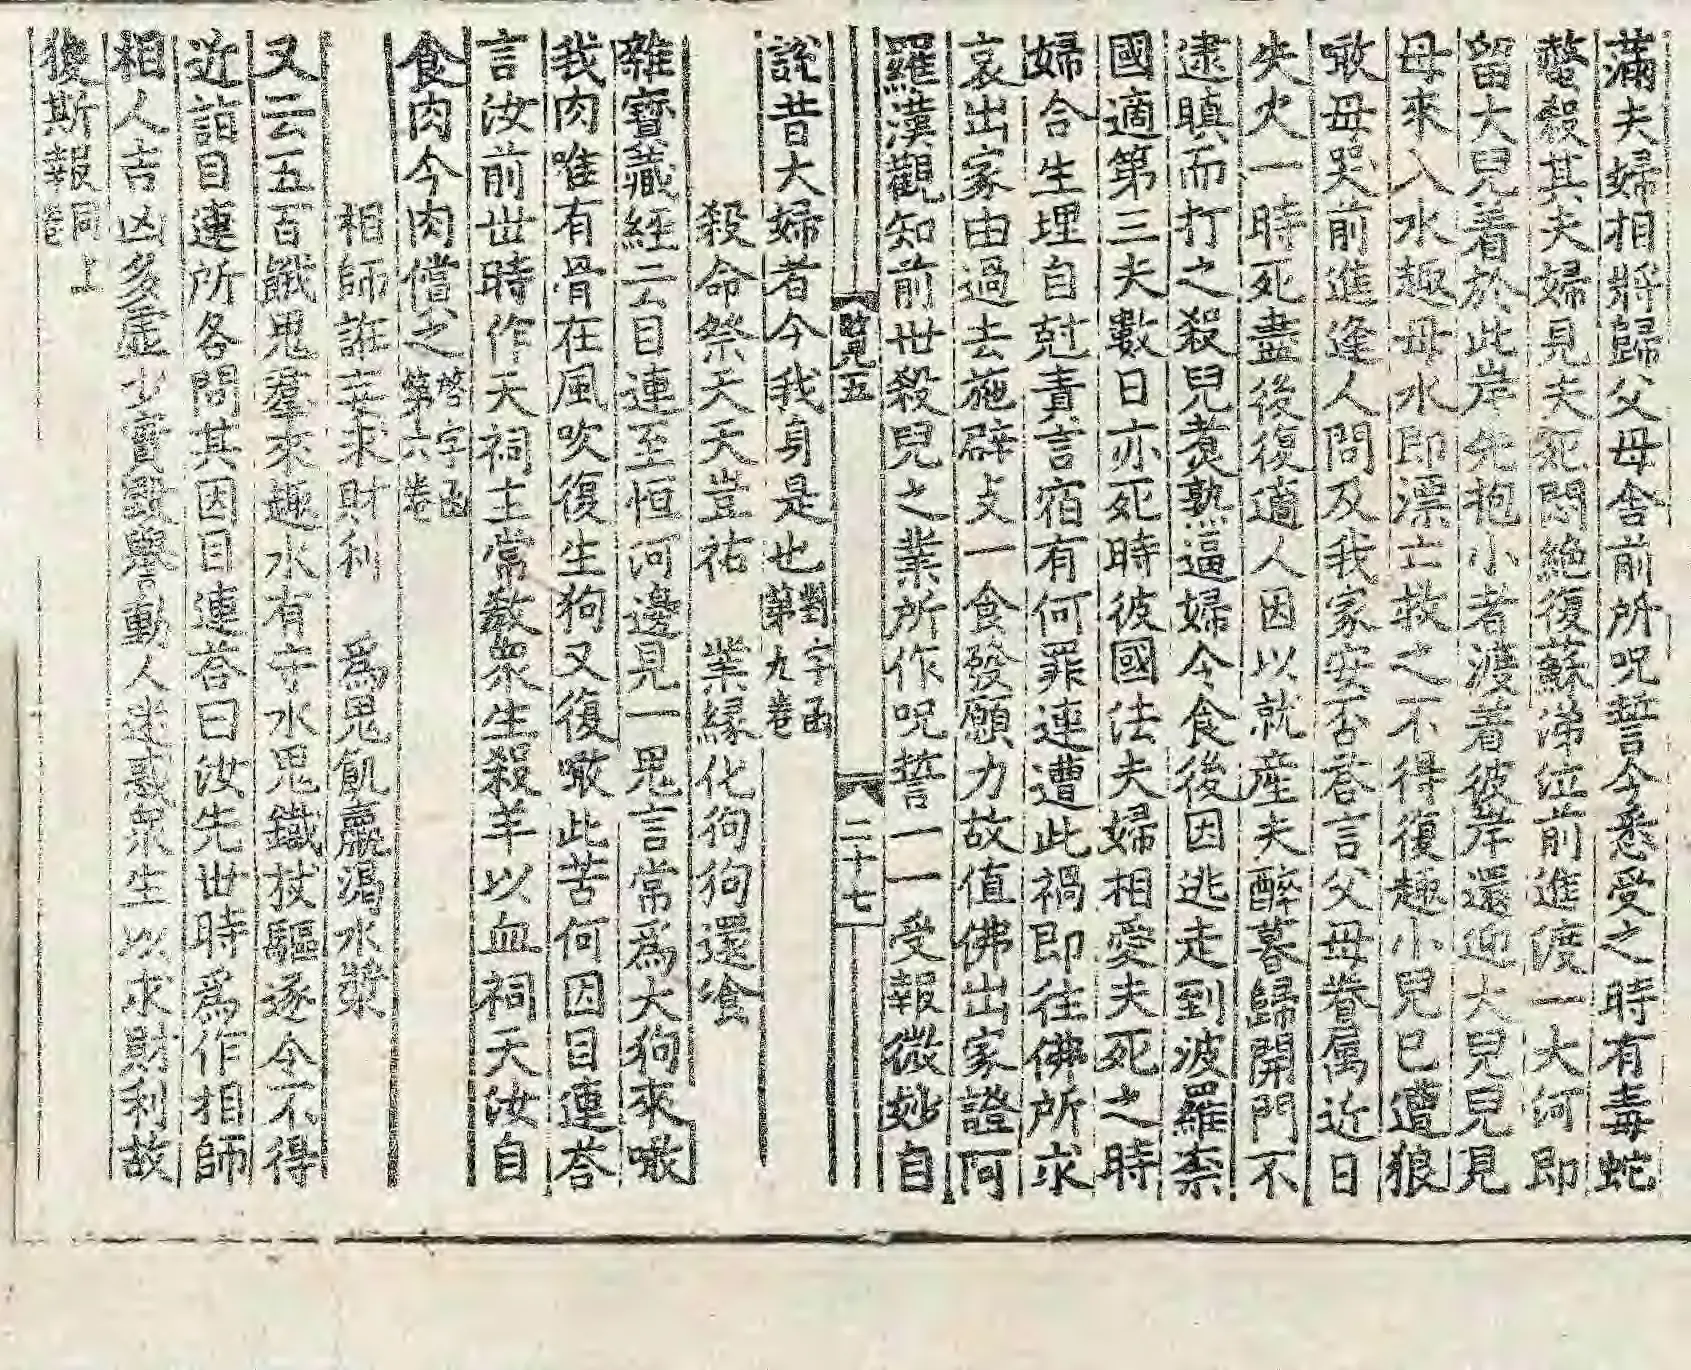 滿夫婦相將歸父母舍前所呪誓今悉受之時有毒蛇
螫殺其夫婦見夫死悶絶復蘇涕泣前進渡一大河即
留大兒着於此岸先抱小者渡着彼岸還迎大兒兒見
母來入水趣母水即漂亡救之不得復趣小兒已遭狼
噉母哭前進逢人問及我家安否荅言父母眷属近日
失火一時死盡後復適人因以就産夫醉暮歸開門不
逮瞋而打之殺兒煑熟逼婦令食後因逃走到波羅柰
國適第三夫數日亦死時彼國法夫婦相愛夫死之時
婦合生埋自尅責言宿有何罪連遭此禍即往佛所求
哀出家由過去施辟支一食發願力故值佛出家證阿
羅漢觀知前世殺兒之業所作呪誓一一受報微妙自
覽五 二十七
說昔大婦者今我身是也 對字函第九卷
殺命祭天天豈祐 業緣化狗狗還飡
雜寶藏經云目連至恒河邊見一鬼言常爲大狗來噉
我肉唯有骨在風吹復生狗又復噉此苦何因目連荅
言汝前世時作天祠主常敎衆生殺羊以血祠天汝自
食肉今肉償之 啓字函第六卷
相師誑妄求財利 爲鬼飢羸渴水漿
又云五百餓鬼羣來趣水有守水鬼鐵杖驅逐令不得
近詣目連所各問其因目連荅曰汝先世時爲作相師
相人吉凶多虛少實毀譽動人迷惑衆生以求財利故
後斯報 同上